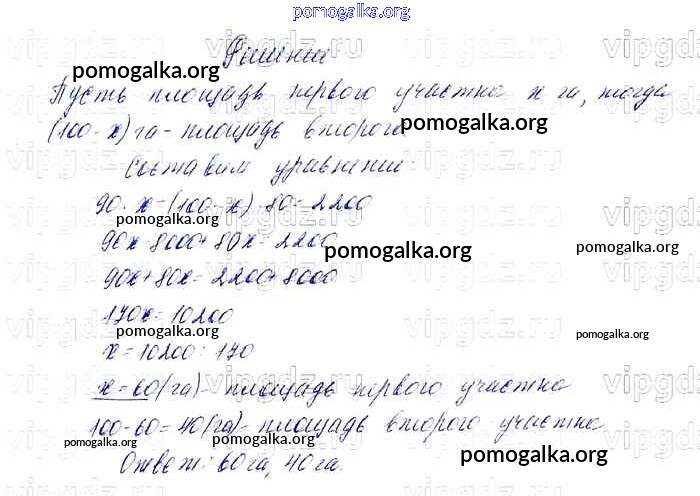 pomogalka.org
Решение
Пусть площадь первого участка x га, тогда
(100-x) га - площадь второго.
Составим уравнение:
90·x-(100-x)·80=2200
90x-8000+80x=2200
90x+80x=2200+8000
170x=10200
x=10200:170
x=60(га)- площадь первого участка
100-60=40(га)- площадь второго участка
Ответ: 60 га, 40 га.
pomogalka.org
pomogalka.org
pomogalka.org
pomogalka.org
pomogalka.org
pomogalka.org
pomogalka.org
pomogalka.org
pomogalka.org
pomogalka.org
pomogalka.org
vipgdz.ru
vipgdz.ru
vipgdz.ru